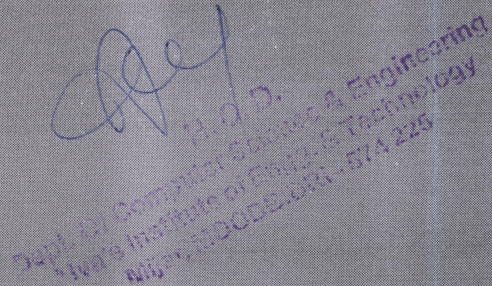 H. O. D.
Dept. Of Computer Science & Engineering
Institute of Engg. & Technology
Mijar, MOODBIDRI - 574 225